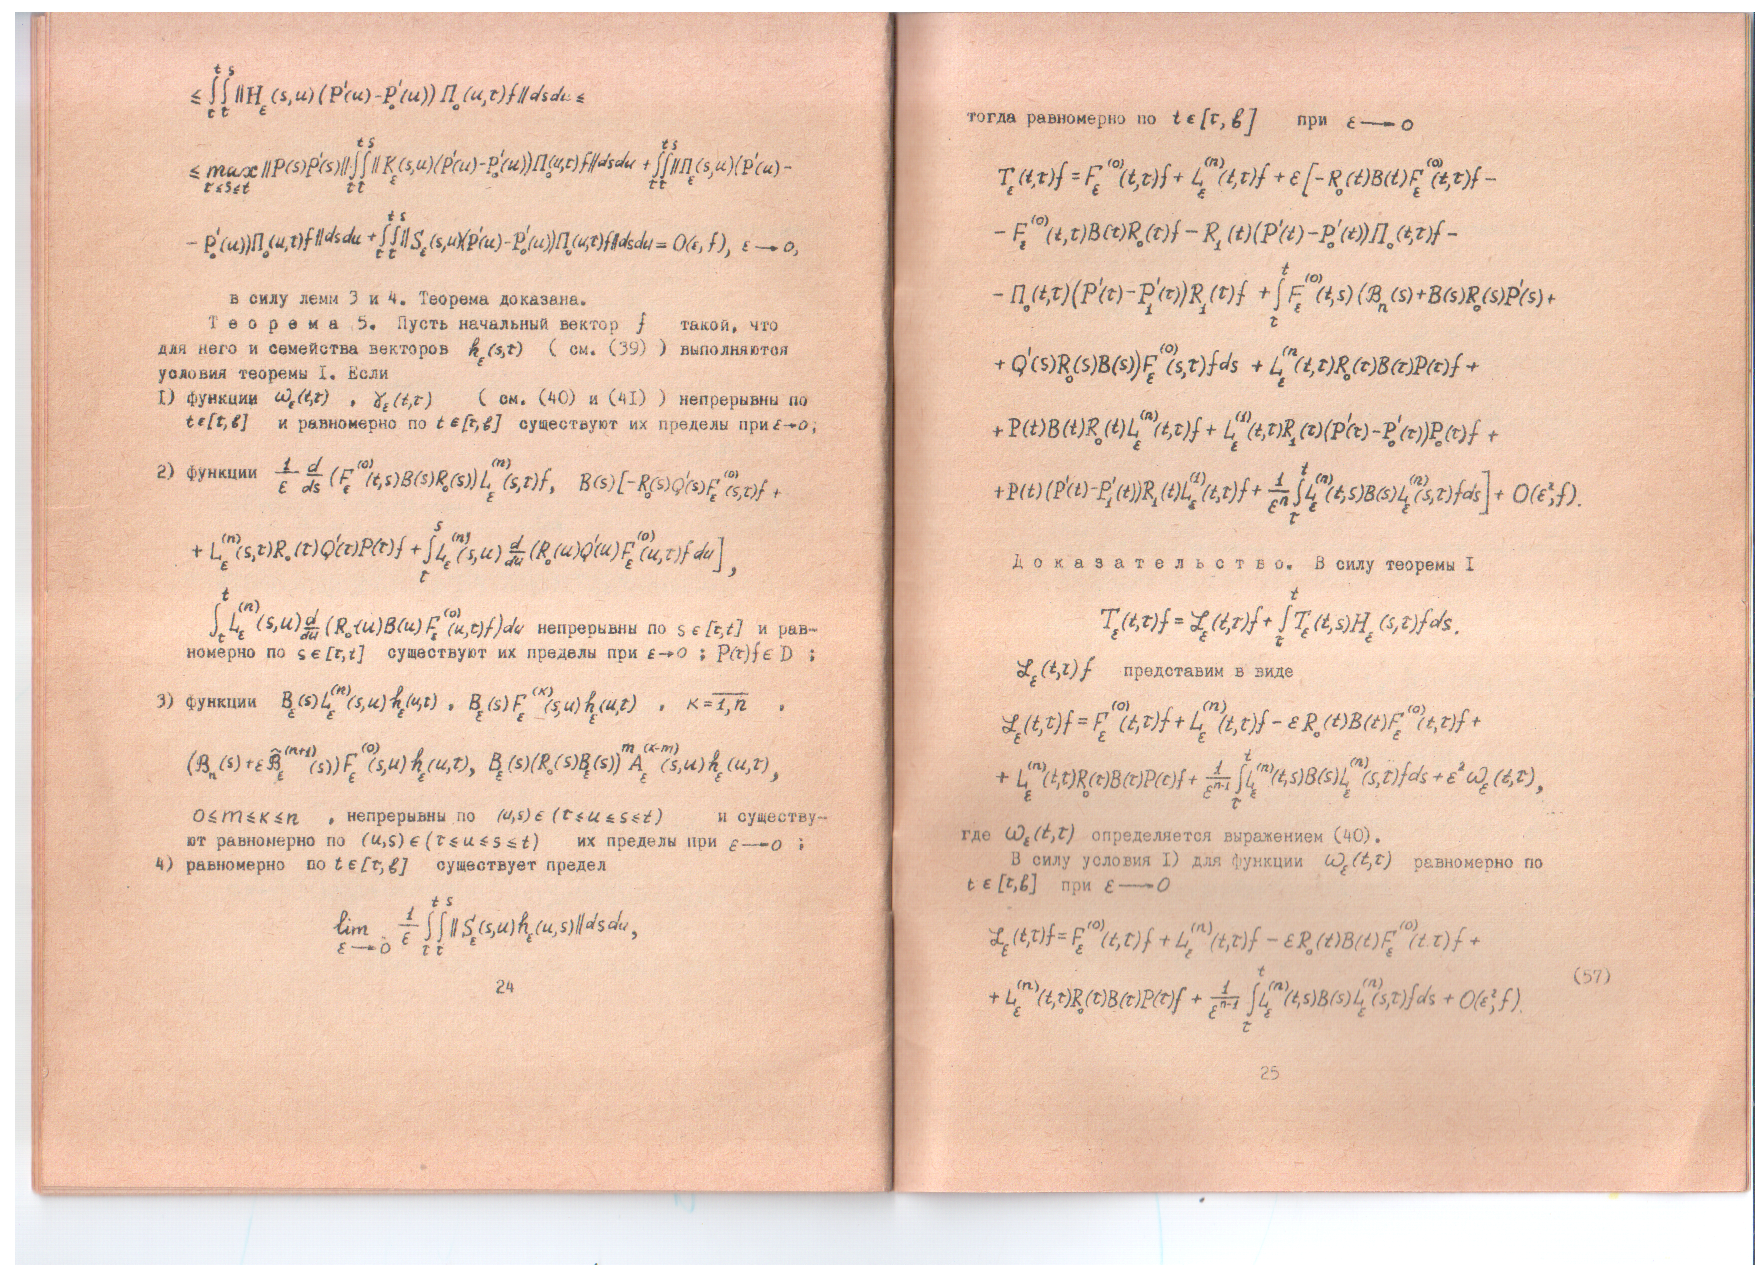 ≤ ∫_τ^t ∫_τ^s ‖H_ε(s,u)(P'(u)-P'_0(u))Π_0(u,τ)f‖dsdu ≤
≤ max_{τ≤s≤t} ‖P(s)P'(s)‖ ∫_τ^t ∫_τ^s ‖K_ε(s,u)(P'(u)-P'_0(u))Π_0(u,τ)f‖dsdu + ∫_τ^t ∫_τ^s ‖Π_ε(s,u)(P'(u)-
- P'_0(u))Π_0(u,τ)f‖dsdu + ∫_τ^t ∫_τ^s ‖S_ε(s,u)(P'(u)-P'_0(u))Π_0(u,τ)f‖dsdu = O(ε,f), ε→0,
в силу лемм 3 и 4. Теорема доказана.
Т е о р е м а 5. Пусть начальный вектор f такой, что
для него и семейства векторов h_ε(s,τ) ( см. (39) ) выполняются
условия теоремы I. Если
I) функции ω_ε(t,τ) , γ_ε(t,τ) ( см. (40) и (4I) ) непрерывны по
t∈[τ,b] и равномерно по t∈[τ,b] существуют их пределы при ε→0;
2) функции 1/ε d/ds (F_ε^(0)(t,s)B(s)R_0(s))L_ε^(n)(s,τ)f, B(s)[-R_0(s)Q'(s)F_ε^(0)(s,τ)f +
+ L_ε^(n)(s,τ)R_0(τ)Q'(τ)P(τ)f + ∫_τ^s L_ε^(n)(s,u) d/du (R_0(u)Q'(u)F_ε^(0)(u,τ)f du],
∫_τ^t L_ε^(n)(s,u) d/du (R_0(u)B(u)F_ε^(0)(u,τ)f)du непрерывны по s∈[τ,t] и рав-
номерно по s∈[τ,t] существуют их пределы при ε→0 ; P(τ)f∈D ;
3) функции B_ε(s)L_ε^(n)(s,u)h_ε(u,τ) , B_ε(s)F_ε^(κ)(s,u)h_ε(u,τ) , κ=\overline{1,n} ,
(ℬ_n(s)+εℬ̃_ε^(n+1)(s))F_ε^(0)(s,u)h_ε(u,τ), B_ε(s)(R_0(s)B_ε(s))^m A_ε^(κ-m)(s,u)h_ε(u,τ),
0≤m≤κ≤n , непрерывны по (u,s)∈(τ≤u≤s≤t) и существу-
ют равномерно по (u,s)∈(τ≤u≤s≤t) их пределы при ε→0 ;
4) равномерно по t∈[τ,b] существует предел
lim_{ε→0} 1/ε ∫_τ^t ∫_τ^s ‖S_ε(s,u)h_ε(u,s)‖dsdu,
24
тогда равномерно по t∈[τ,b] при ε→0
T_ε(t,τ)f = F_ε^(0)(t,τ)f + L_ε^(n)(t,τ)f + ε[-R_0(t)B(t)F_ε^(0)(t,τ)f -
- F_ε^(0)(t,τ)B(τ)R_0(τ)f - R_1(t)(P'(t)-P'_0(t))Π_0(t,τ)f -
- Π_0(t,τ)(P'(τ)-P'_1(τ))R_1(τ)f + ∫_τ^t F_ε^(0)(t,s)(ℬ_n(s)+B(s)R_0(s)P'(s)+
+ Q'(s)R_0(s)B(s))F_ε^(0)(s,τ)fds + L_ε^(n)(t,τ)R_0(τ)B(τ)P(τ)f +
+ P(t)B(t)R_0(t)L_ε^(n)(t,τ)f + L_ε^(1)(t,τ)R_1(τ)(P'(τ)-P'_0(τ))P_0(τ)f +
+ P(t)(P'(t)-P'_1(t))R_1(t)L_ε^(1)(t,τ)f + 1/ε^n ∫_τ^t L_ε^(n)(t,s)B(s)L_ε^(n)(s,τ)fds] + O(ε²,f).
Д о к а з а т е л ь с т в о. В силу теоремы I
T_ε(t,τ)f = ℒ_ε(t,τ)f + ∫_τ^t T_ε(t,s)H_ε(s,τ)fds.
ℒ_ε(t,τ)f представим в виде
ℒ_ε(t,τ)f = F_ε^(0)(t,τ)f + L_ε^(n)(t,τ)f - εR_0(t)B(t)F_ε^(0)(t,τ)f +
+ L_ε^(n)(t,τ)R_0(τ)B(τ)P(τ)f + 1/ε^{n-1} ∫_τ^t L_ε^(n)(t,s)B(s)L_ε^(n)(s,τ)fds + ε²ω_ε(t,τ),
где ω_ε(t,τ) определяется выражением (40).
В силу условия I) для функции ω_ε(t,τ) равномерно по
t∈[τ,b] при ε→0
ℒ_ε(t,τ)f = F_ε^(0)(t,τ)f + L_ε^(n)(t,τ)f - εR_0(t)B(t)F_ε^(0)(t,τ)f +
(57)
+ L_ε^(n)(t,τ)R_0(τ)B(τ)P(τ)f + 1/ε^{n-1} ∫_τ^t L_ε^(n)(t,s)B(s)L_ε^(n)(s,τ)fds + O(ε²,f).
25